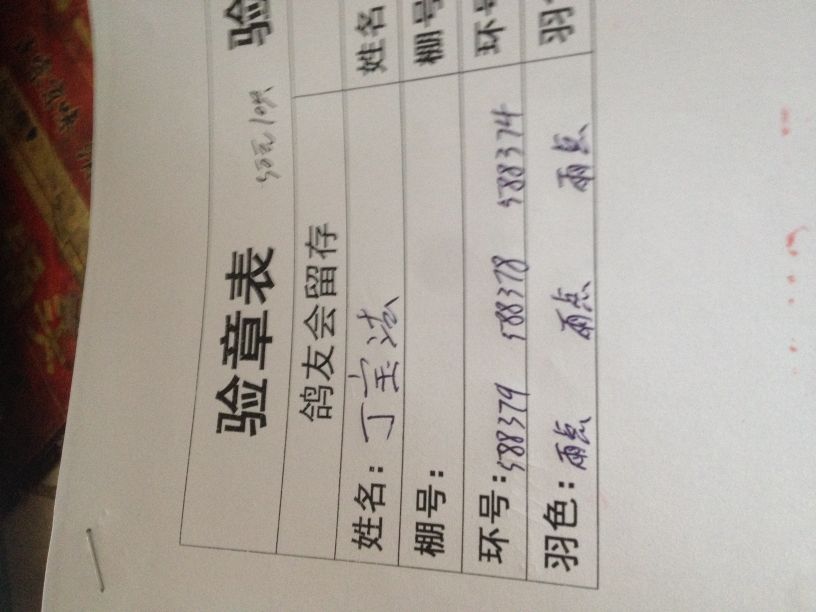 验章表
鸽友会留存
姓名：丁宝法
棚号：
环号：588379 588378 588374
羽色：雨点 雨点 雨点
验
姓名
棚号
环号
羽色